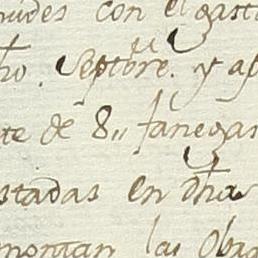 nudes con el gasta
ho. Septbre. y ap
te de 8,, fanegas
stadas en dha
montan las Obra